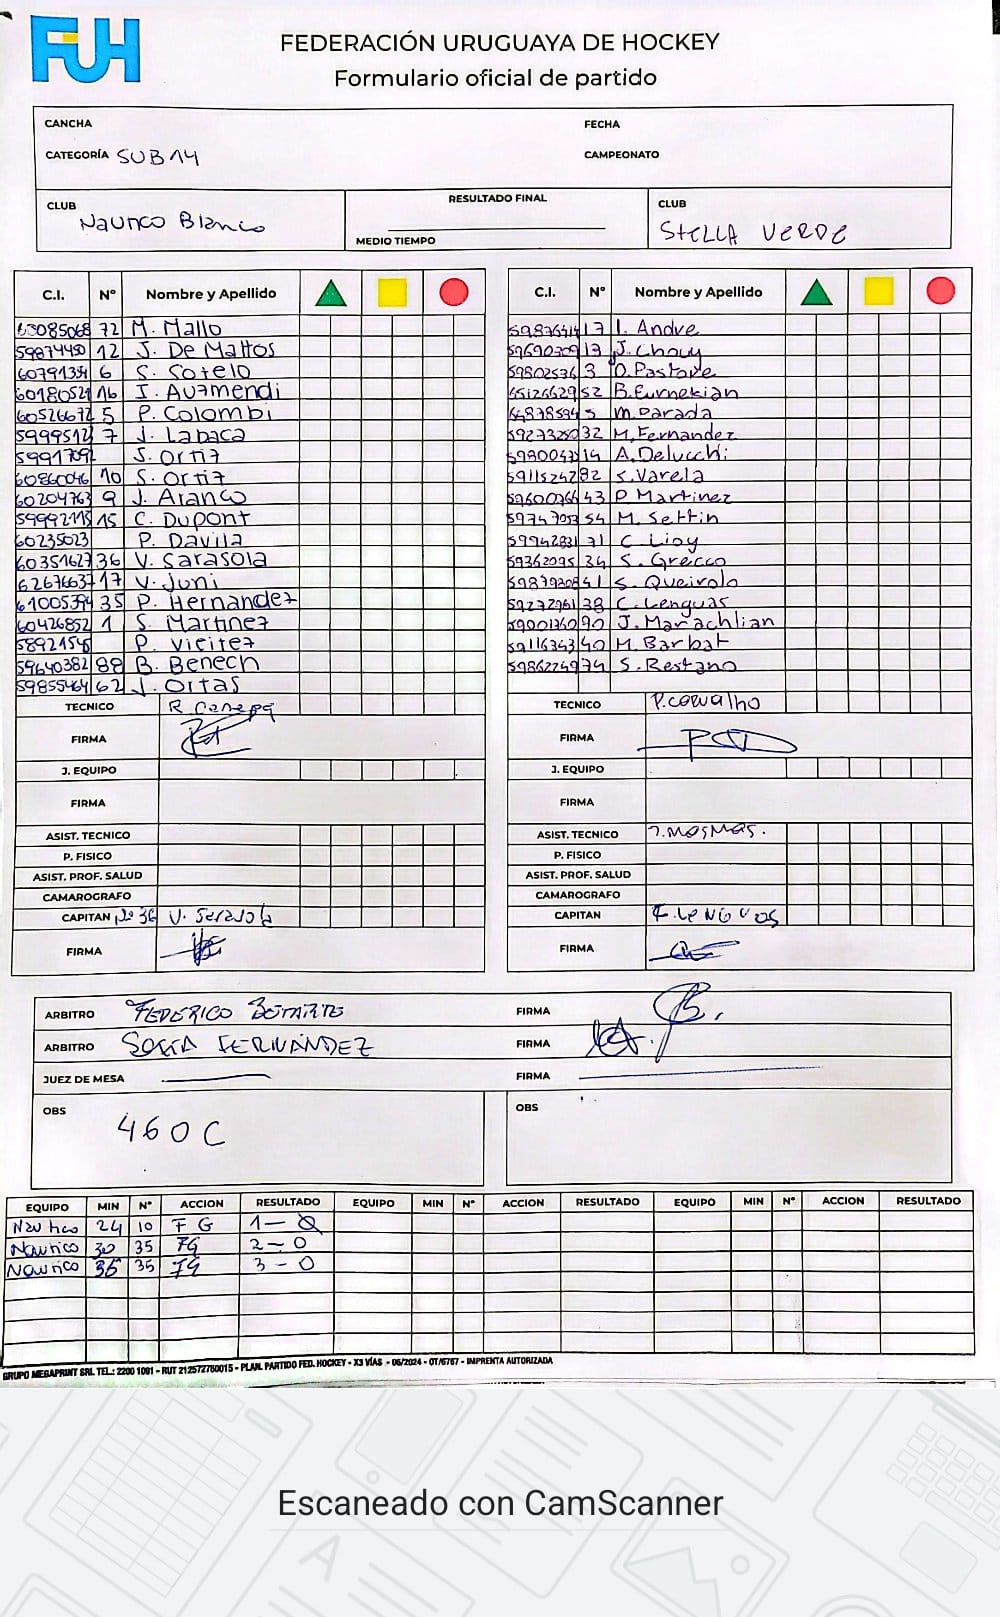 FUH
FEDERACIÓN URUGUAYA DE HOCKEY
Formulario oficial de partido
CANCHA
FECHA
CATEGORÍA SUB14
CAMPEONATO
CLUB
Nautico Blanco
RESULTADO FINAL
MEDIO TIEMPO
CLUB
STELLA VERDE
C.I. N° Nombre y Apellido
63085068 72 M. Mallo
59874450 12 J. De Mattos
60791354 6 S. Sotelo
60180521 16 I. Auzmendi
60526672 5 P. Colombi
5999512 7 J. Labaca
5991709 S. Ortiz
60860046 10 S. Ortiz
60204763 9 J. Aranco
59992115 15 C. Dupont
60235023 P. Davila
60351627 36 V. Sarasola
62676637 17 V. Juni
61005394 35 P. Hernandez
60426852 1 S. Martinez
5892154 P. Vieitez
59640382 88 B. Benech
59855464 62 J. Ortas
TECNICO R. Canepa
FIRMA
J. EQUIPO
FIRMA
ASIST. TECNICO
P. FISICO
ASIST. PROF. SALUD
CAMAROGRAFO
CAPITAN N° 36 V. Sarasola
FIRMA
C.I. N° Nombre y Apellido
5987641 17 I. Andre
5969030 13 J. Chouy
5980253 3 O. Pastore
6512662 52 B. Eurnekian
6487859 5 M. Parada
5927325 32 M. Fernandez
5980043 14 A. Delucchi
5911524 82 S. Varela
5960036 43 P. Martinez
5974705 54 M. Settin
5994283 71 C. Lioy
59362095 34 S. Grecco
5987930 41 S. Queirolo
5927296 38 C. Lenguas
5900136 90 J. Marachlian
5911634 40 M. Barbat
5986224 74 S. Restano
TECNICO P. Carvalho
FIRMA
J. EQUIPO
FIRMA
ASIST. TECNICO
P. FISICO
ASIST. PROF. SALUD
CAMAROGRAFO
CAPITAN F. Lenguas
FIRMA
ARBITRO FEDERICO BOTARTE
FIRMA
ARBITRO SOFIA FERNÁNDEZ
FIRMA
JUEZ DE MESA
FIRMA
OBS
460C
OBS
EQUIPO MIN N° ACCION RESULTADO EQUIPO MIN N° ACCION RESULTADO EQUIPO MIN N° ACCION RESULTADO
Nautico 24 10 FG 1-0
Nautico 30 35 FG 2-0
Nautico 35 35 FG 3-0
GRUPO MEGAPRINT SRL TEL.: 2200 1091 - RUT 212572780015 - PLAN. PARTIDO FED. HOCKEY - X3 VÍAS - 06/2024 - OT/6767 - IMPRENTA AUTORIZADA
Escaneado con CamScanner